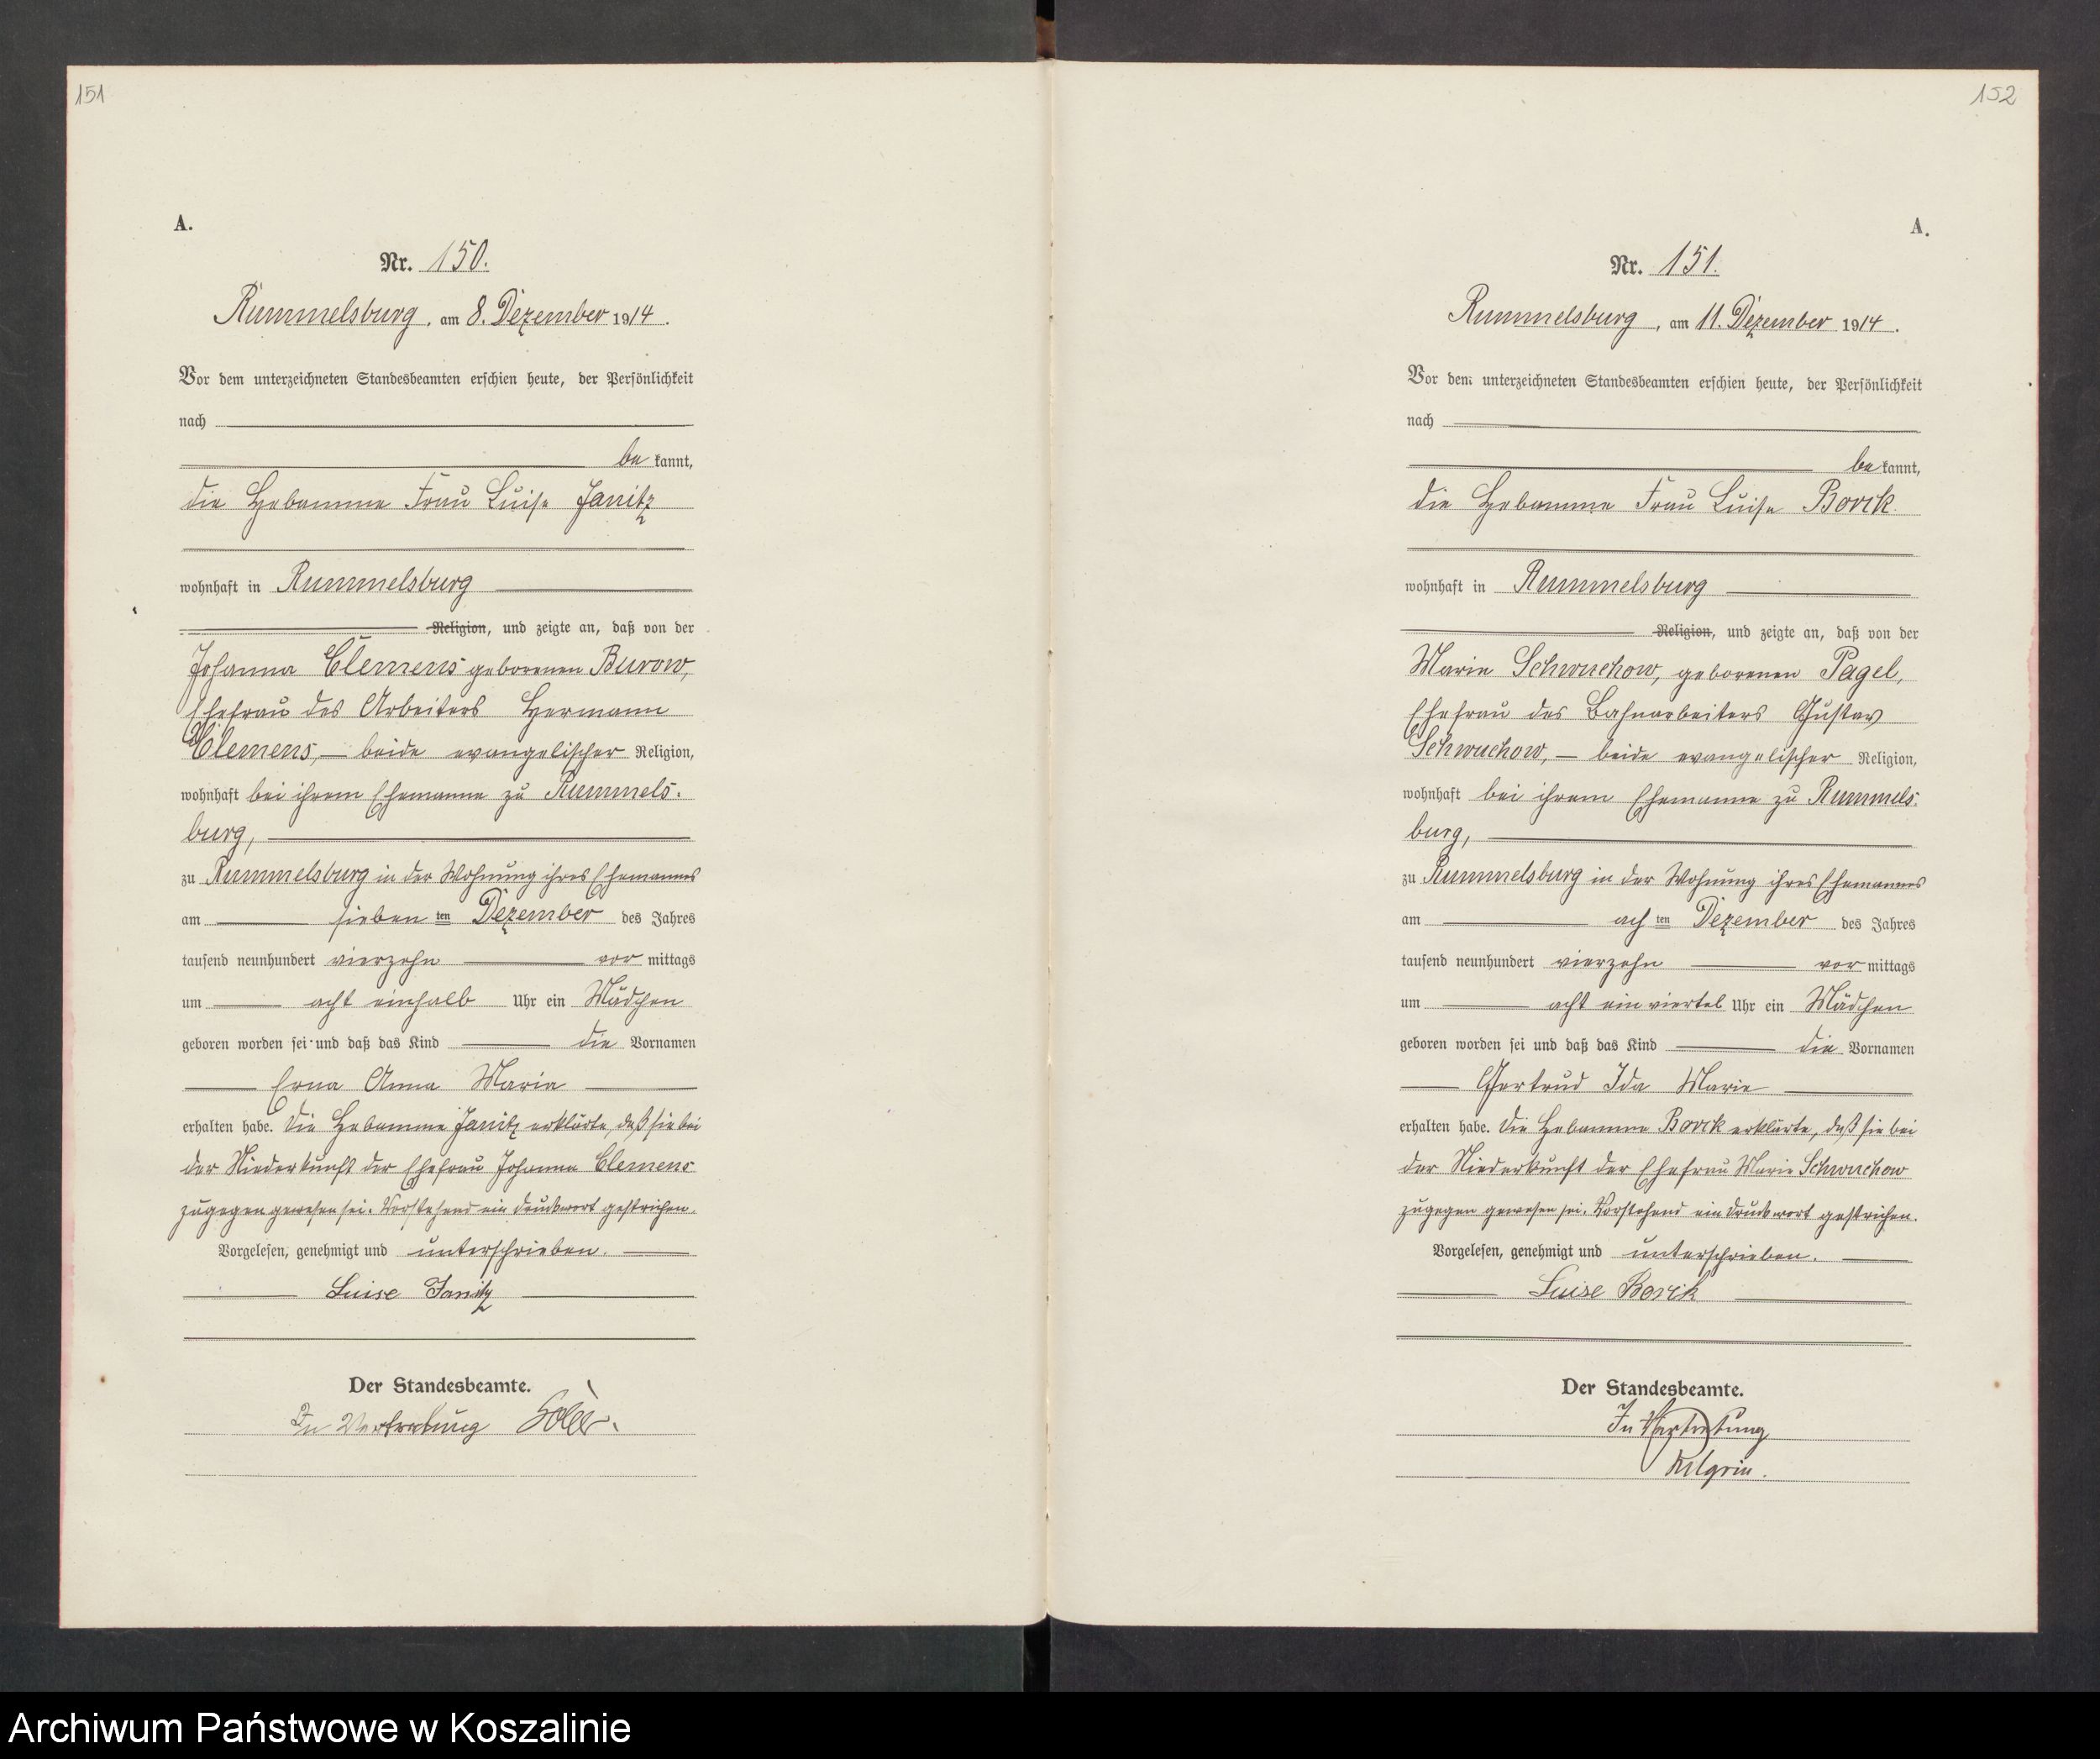 151
A.
Nr. 150.
Rummelsburg, am 8. Dezember 1914.
Vor dem unterzeichneten Standesbeamten erschien heute, der Persönlichkeit
nach
be kannt,
die Hebamme Frau Luise Janitz
wohnhaft in Rummelsburg
Religion, und zeigte an, daß von der
Johanna Clemens geborenen Burow,
Ehefrau des Arbeiters Hermann
Clemens, — beide evangelischer Religion,
wohnhaft bei ihrem Ehemanne zu Rummels-
burg,
zu Rummelsburg in der Wohnung ihres Ehemannes
am sieben ten Dezember des Jahres
tausend neunhundert vierzehn vor mittags
um acht einhalb Uhr ein Mädchen
geboren worden sei und daß das Kind die Vornamen
Erna Anna Maria
erhalten habe. Die Hebamme Janitz erklärte, daß sie bei
der Niederkunft der Ehefrau Johanna Clemens
zugegen gewesen sei. Vorstehend ein Druckwort gestrichen.
Vorgelesen, genehmigt und unterschrieben.
Luise Janitz
Der Standesbeamte.
In Vertretung
152
A.
Nr. 151.
Rummelsburg, am 11. Dezember 1914.
Vor dem unterzeichneten Standesbeamten erschien heute, der Persönlichkeit
nach
be kannt,
die Hebamme Frau Luise Borck
wohnhaft in Rummelsburg
Religion, und zeigte an, daß von der
Marie Schwuchow, geborenen Pagel,
Ehefrau des Bahnarbeiters Gustav
Schwuchow, — beide evangelischer Religion,
wohnhaft bei ihrem Ehemanne zu Rummels-
burg,
zu Rummelsburg in der Wohnung ihres Ehemannes
am ach ten Dezember des Jahres
tausend neunhundert vierzehn vor mittags
um acht ein viertel Uhr ein Mädchen
geboren worden sei und daß das Kind die Vornamen
Gertrud Ida Marie
erhalten habe. Die Hebamme Borck erklärte, daß sie bei
der Niederkunft der Ehefrau Marie Schwuchow
zugegen gewesen sei. Vorstehend ein Druckwort gestrichen.
Vorgelesen, genehmigt und unterschrieben.
Luise Borck
Der Standesbeamte.
In Vertretung
Archiwum Państwowe w Koszalinie